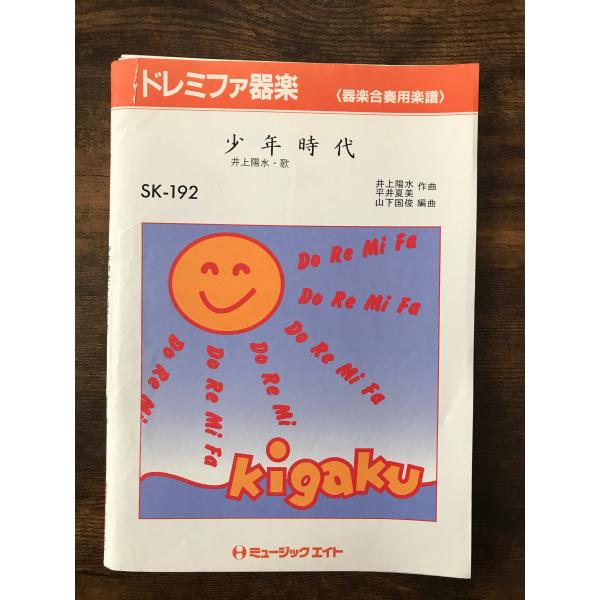 ドレミファ器楽
〈器楽合奏用楽譜〉
少年時代
井上陽水・歌
SK-192
井上陽水 作曲
平井夏美
山下国俊 編曲
Do Re Mi Fa
Do Re Mi Fa
Do Re Mi Fa
Do Re Mi
Do Re Mi Fa
Do Re Mi
kigaku
ミュージックエイト